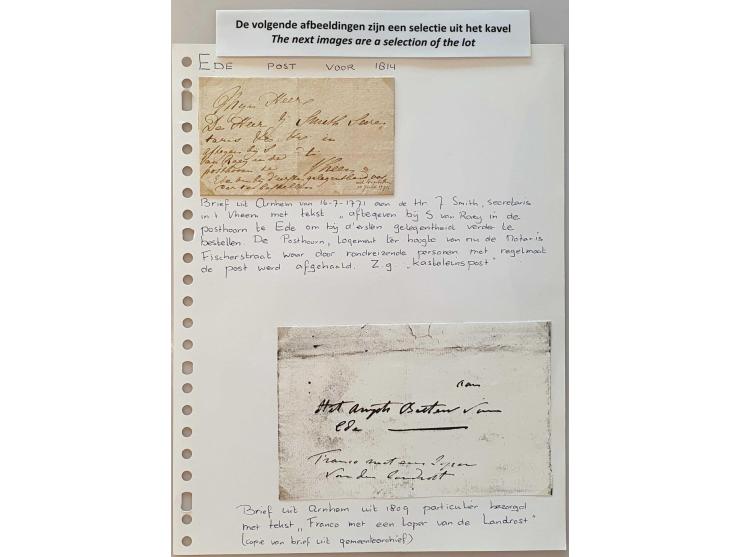 De volgende afbeeldingen zijn een selectie uit het kavel
The next images are a selection of the lot
EDE POST VOOR 1814
Mijn Heer
De Heer J Smith Secre,
taris
in
afgegeven bij S
van Raey in de
posthoorn te
Ede om bij d'ersten gelegentheid
Brief uit Arnhem van 16-7-1771 aan de Hr J Smith, secretaris
in 't Vheem met tekst „afbegeven bij S van Raey in de
posthoorn te Ede om bij d'ersten gelegentheid verder te
bestellen. De Posthoorn, Logement ter hoogte van nu de Notaris
Fischerstraat waar door rondreizende personen met regelmaat
de post werd afgehaald. Z.g. „kasteleinspost"
aan
Het Ampts Bestuur van
Ede
Franco met een Loper
van den Landrost
Brief uit Arnhem uit 1809 particulier bezorgd
met tekst „Franco met een Loper van de Landrost"
(copie van brief uit gemeentearchief)